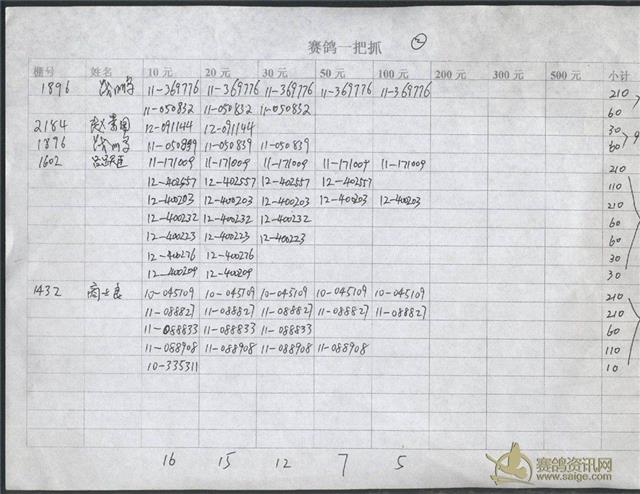 赛鸽一把抓 ②
棚号 姓名 10元 20元 30元 50元 100元 200元 300元 500元 小计
1896 11-369776 11-369776 11-369776 11-369776 11-369776 210
11-050832 11-050832 11-050832 60
2184 12-091144 12-091144 30
1896 11-050839 11-050839 11-050839 60
1602 11-171009 11-171009 11-171009 11-171009 11-171009 210
12-402557 12-402557 12-402557 12-402557 110
12-400203 12-400203 12-400203 12-400203 12-400203 210
12-400232 12-400232 12-400232 60
12-400223 12-400223 12-400223 60
12-400276 12-400276 30
12-400209 12-400209 30
1432 商士良 10-045109 10-045109 10-045109 10-045109 10-045109 210
11-088827 11-088827 11-088827 11-088827 11-088827 210
11-088833 11-088833 11-088833 60
11-088908 11-088908 11-088908 11-088908 110
10-335311 10
16 15 12 7 5
赛鸽资讯网
www.saige.com